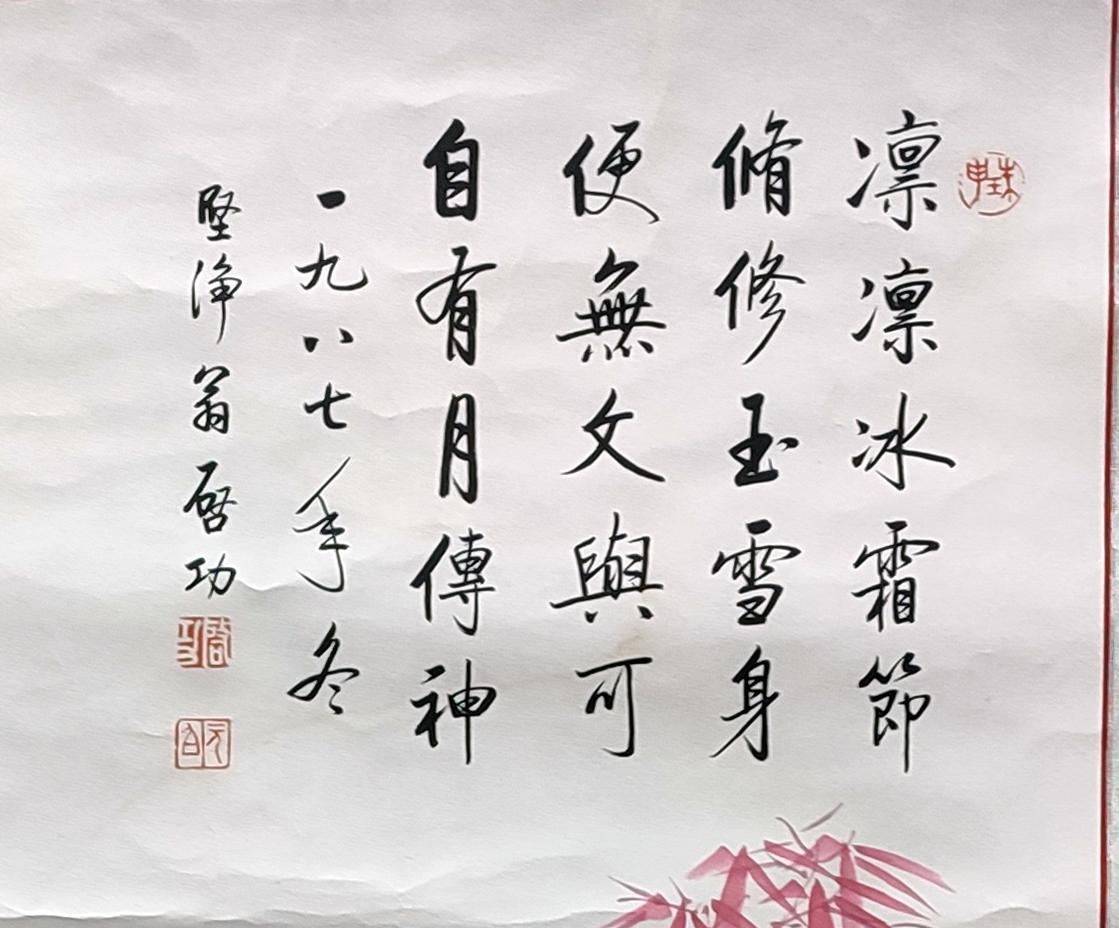 凛凛冰霜節
脩修玉雪身
便無文與可
自有月傳神
一九八七年冬
堅淨翁啓功